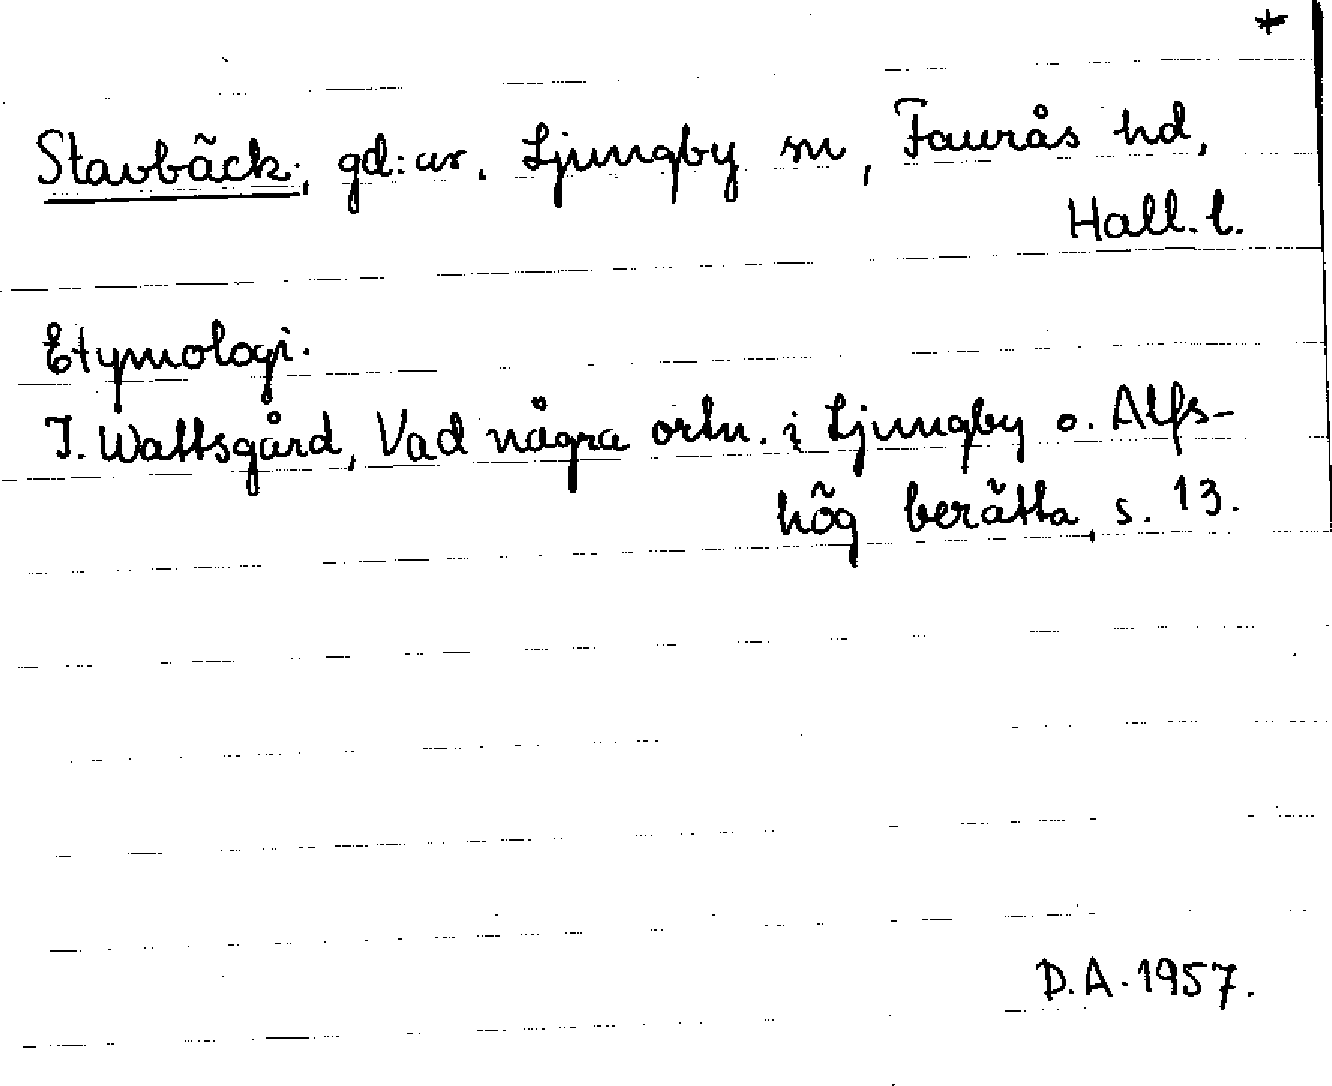 +
Stavbäck, gd:ar. Ljungby sn, Faurås hd,
Hall. l.
Etymologi.
I. Wattsgård, Vad några ortn. i Ljungby o. Alfs-
hög berätta, s. 13.
D.A. 1957.